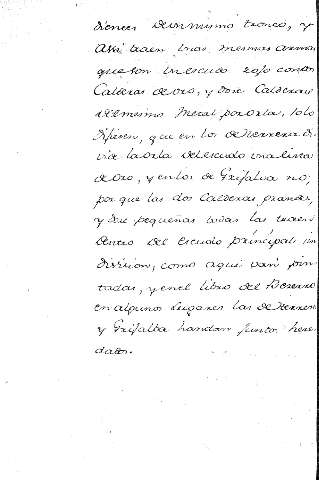 dienees de un mismo tronco, y
assi traen unas mesmas armas
que son un escudo rojo con dos
Calderas de oro, y doze Calderas
del mesmo metal por orla, solo
difieren, que en los de Herrera di-
vide la orla del escudo una lista
de oro, y en los de Grifalva no;
por que las dos Calderas grandes,
y doze pequeñas todas las traen
dentro del escudo principal sin
division, como aqui van pin-
tadas, y en el libro del Bezerro
en algunos lugares los de Herrera
y Grifalba handan juntos here-
dados.